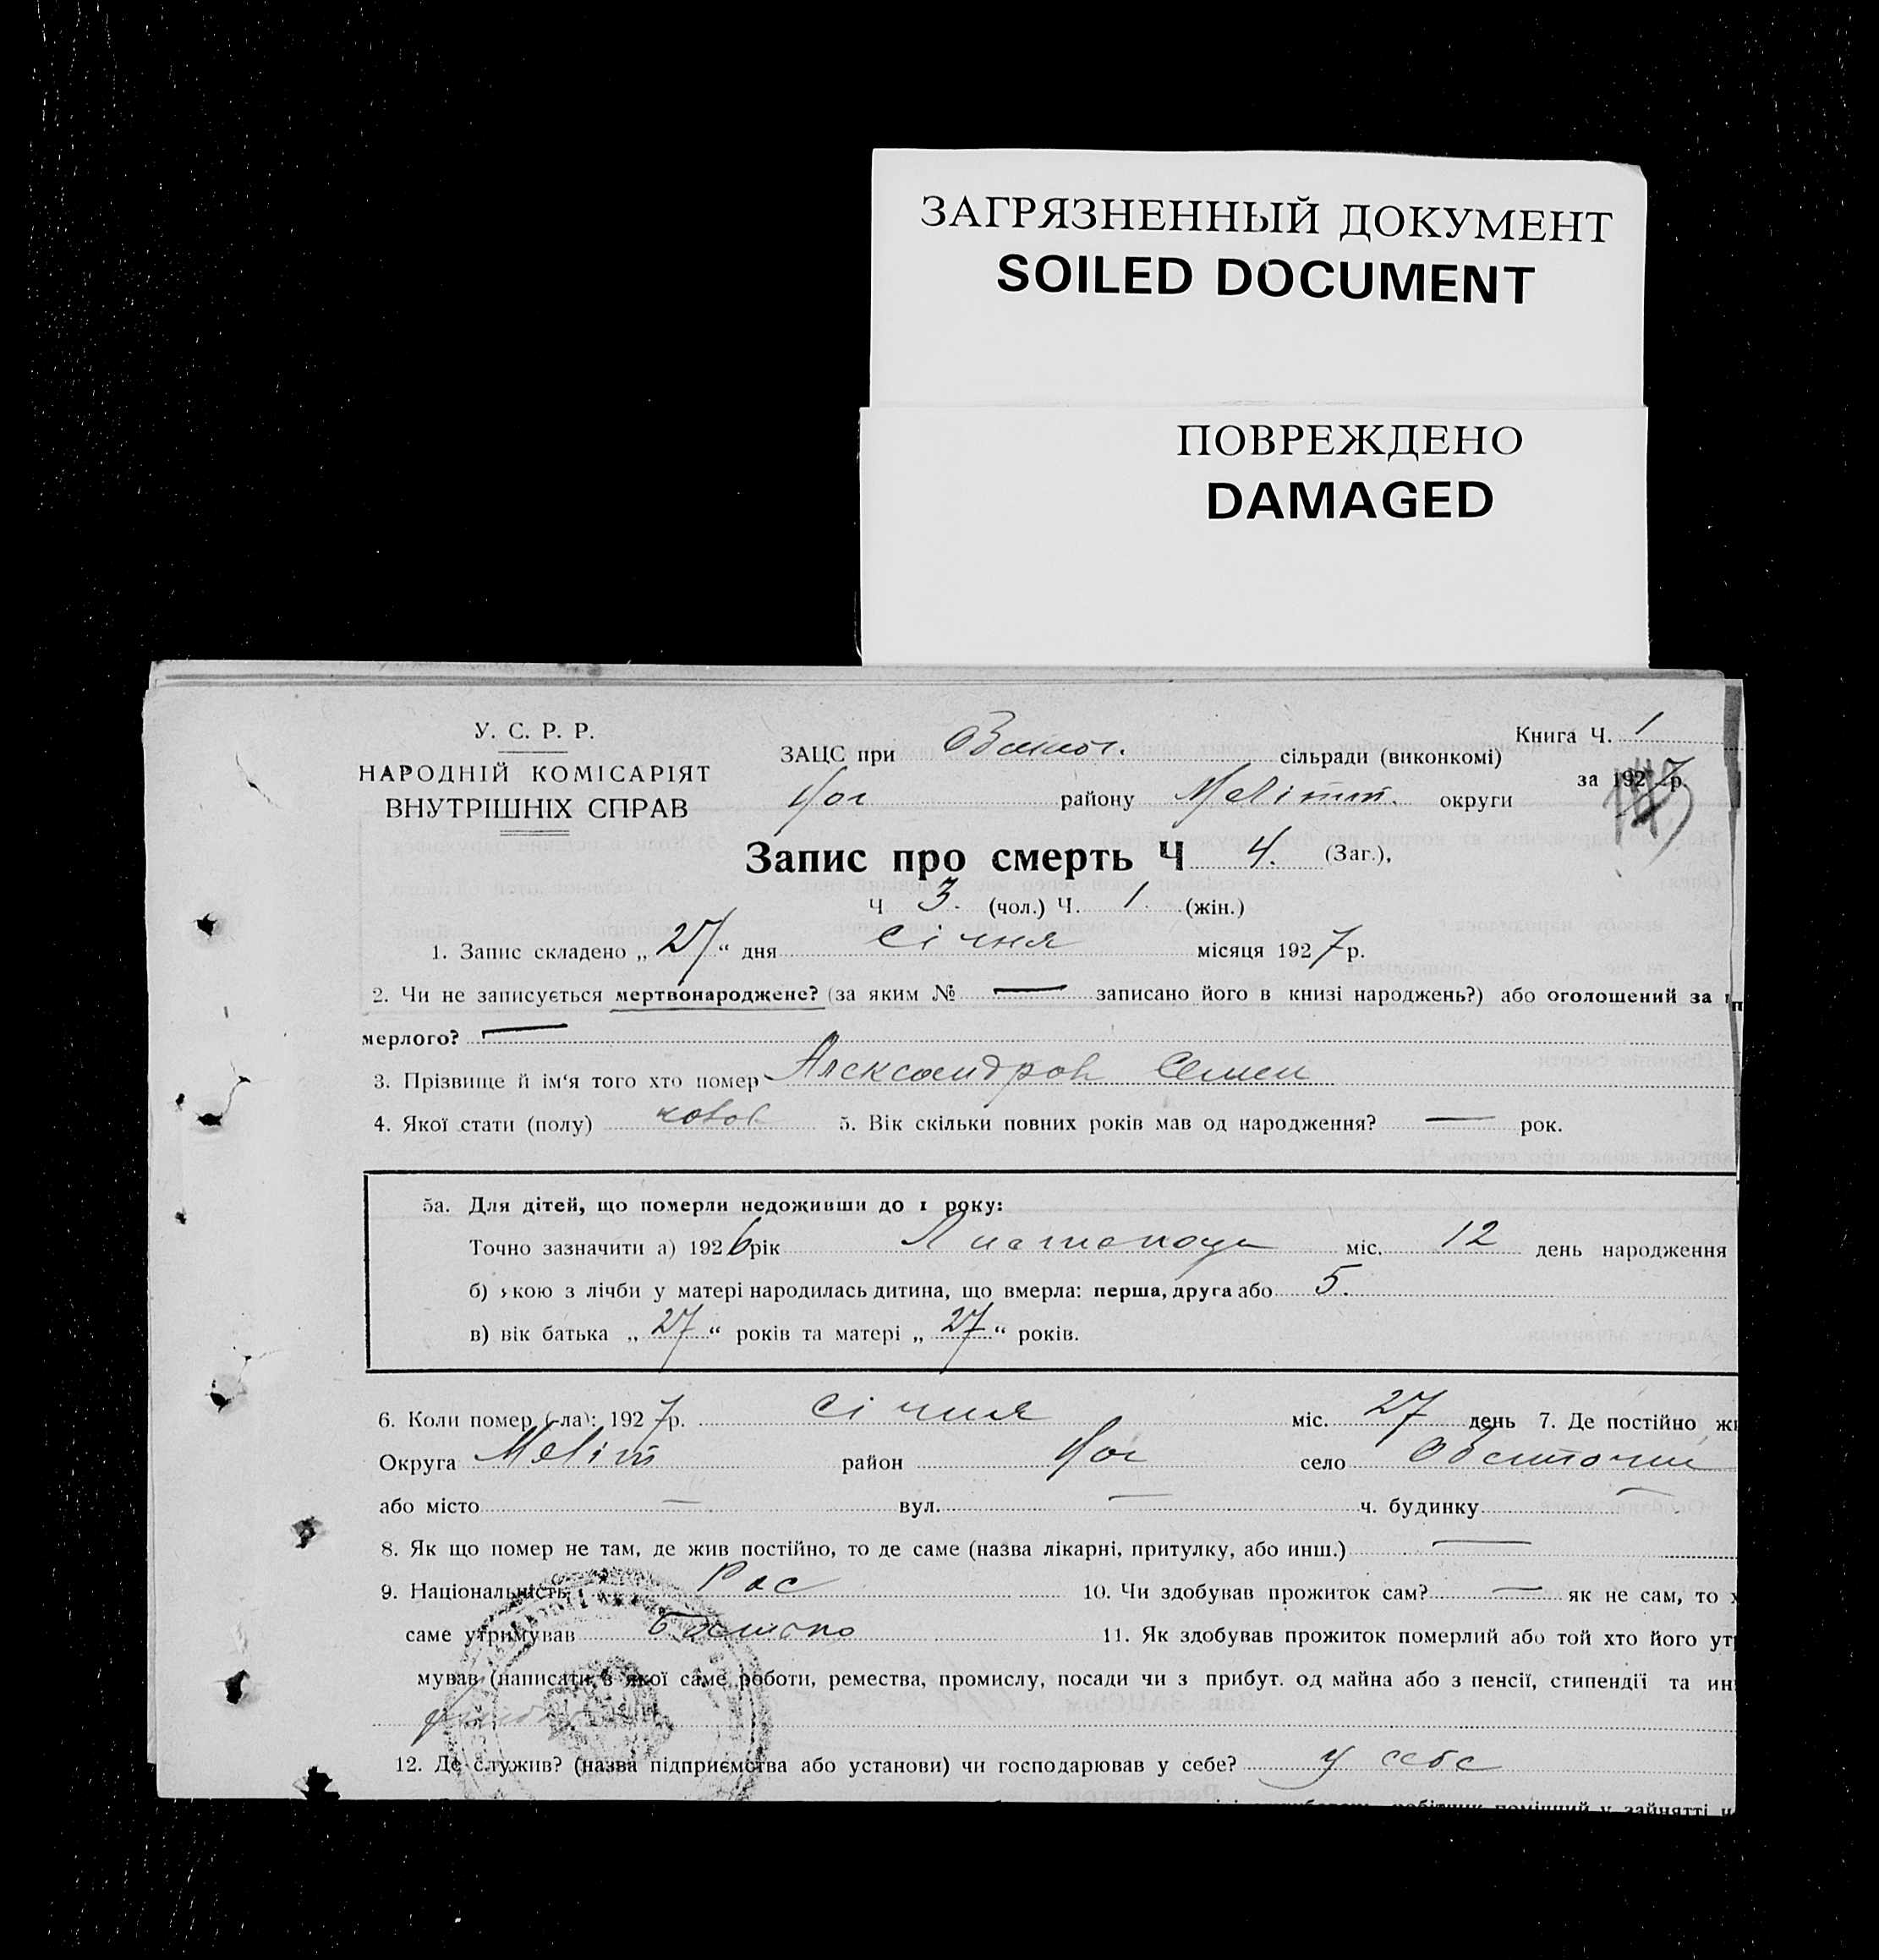 ЗАГРЯЗНЕННЫЙ ДОКУМЕНТ
SOILED DOCUMENT
ПОВРЕЖДЕНО
DAMAGED
У. С. Р. Р.
НАРОДНІЙ КОМІСАРІЯТ
ВНУТРІШНІХ СПРАВ
Книга Ч. 1
ЗАЦС при сільради (виконкомі)
за 1927 р.
Ног району Меліт. округи
Запис про смерть Ч 4. (Заг.),
Ч 3. (чол.) Ч. 1. (жін.)
1. Запис складено „27“ дня січня місяця 1927 р.
2. Чи не записується мертвонароджене? (за яким № — записано його в книзі народжень?) або оголошений за
мерлого? —
3. Прізвище й ім‘я того хто помер Александров Семен
4. Якої стати (полу) 5. Вік скільки повних років мав од народження? — рок.
5а. Для дітей, що померли недоживши до 1 року:
Точно зазначити а) 1926 рік Листопада міс. 12 день народження
б) якою з лічби у матері народилась дитина, що вмерла: перша, друга або 5.
в) вік батька „27“ років та матері „27“ років.
6. Коли помер (-ла): 1927 р. січня міс. 27 день 7. Де постійно
Округа Меліт район Ног село Обиточни
або місто — вул. — ч. будинку —
8. Як що помер не там, де жив постійно, то де саме (назва лікарні, притулку, або инш.) —
9. Національність Рос 10. Чи здобував прожиток сам? — як не сам, то
саме утримував 11. Як здобував прожиток померлий або той хто його
мував (написати, з якої саме роботи, ремества, промислу, посади чи з прибут. од майна або з пенсії, стипендії та
12. Де служив? (назва підприємства або установи) чи господарював у себе? у себе